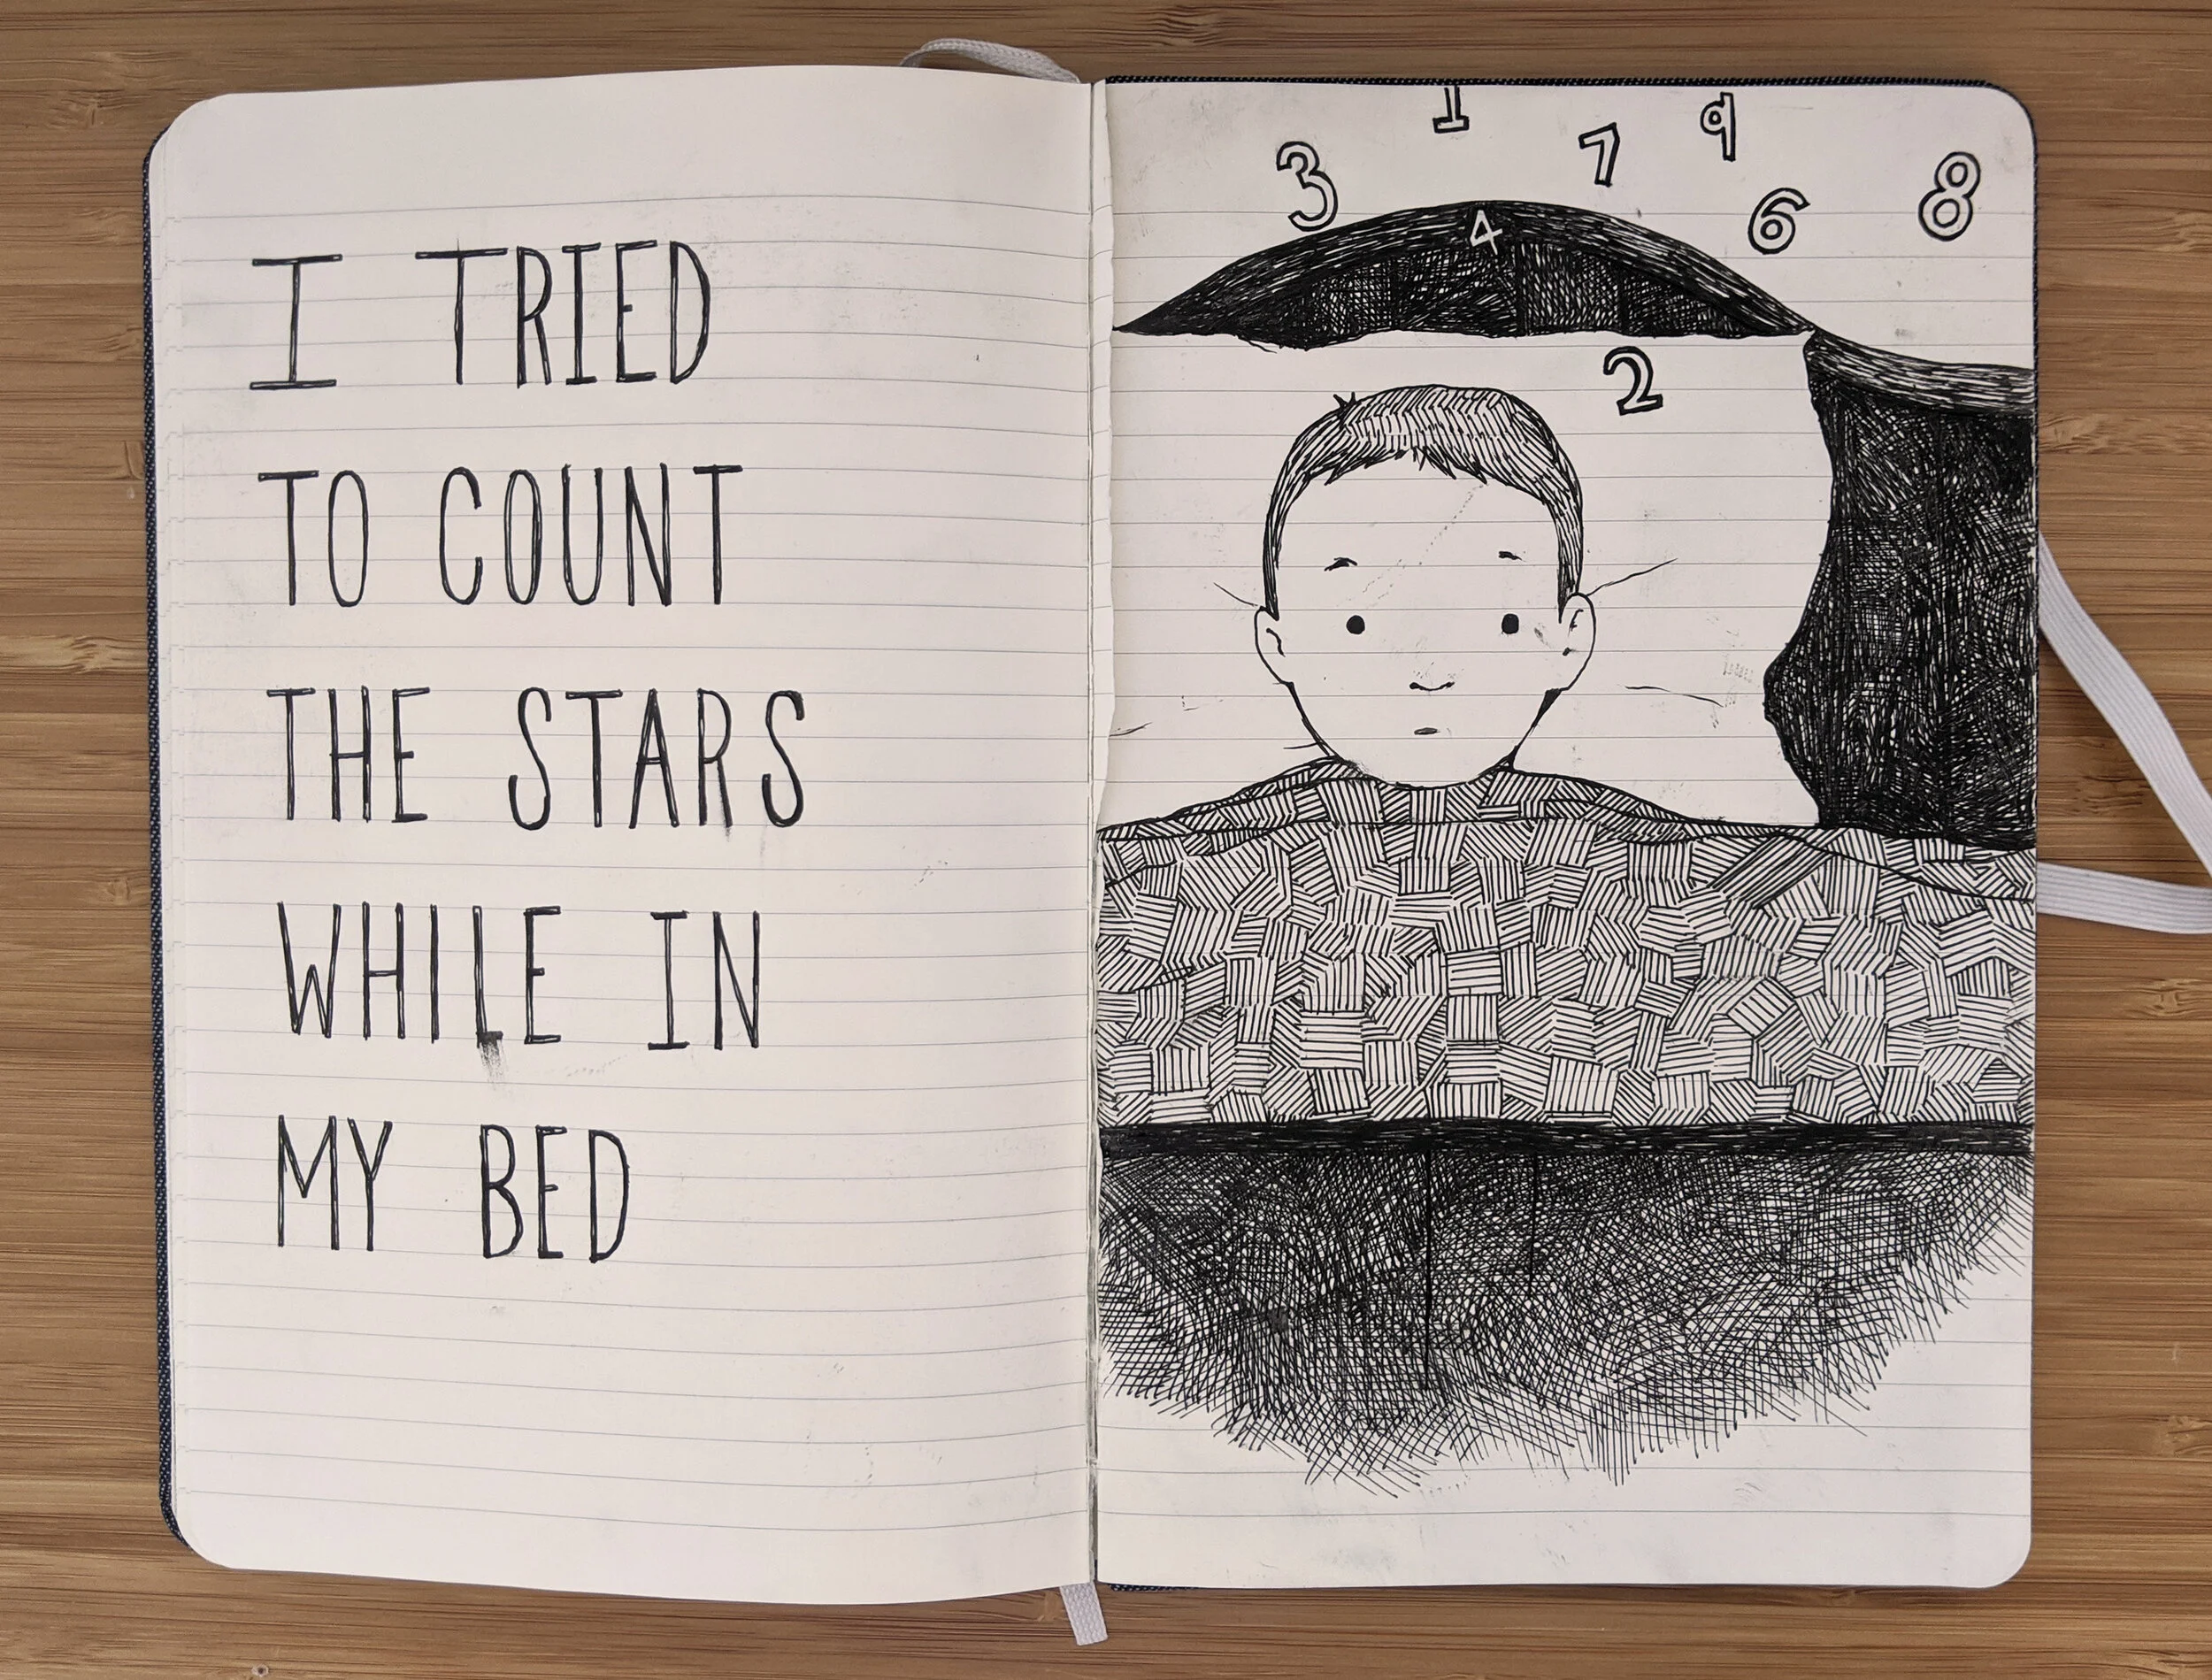 I TRIED
TO COUNT
THE STARS
WHILE IN
MY BED
1
9
7
3
8
6
4
2